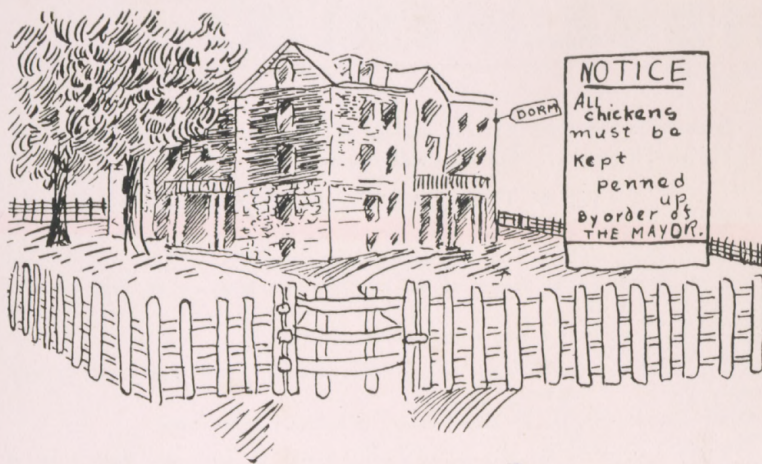 DORM
NOTICE
All
chickens
must be
Kept
penned
up
By order of
THE MAYOR.